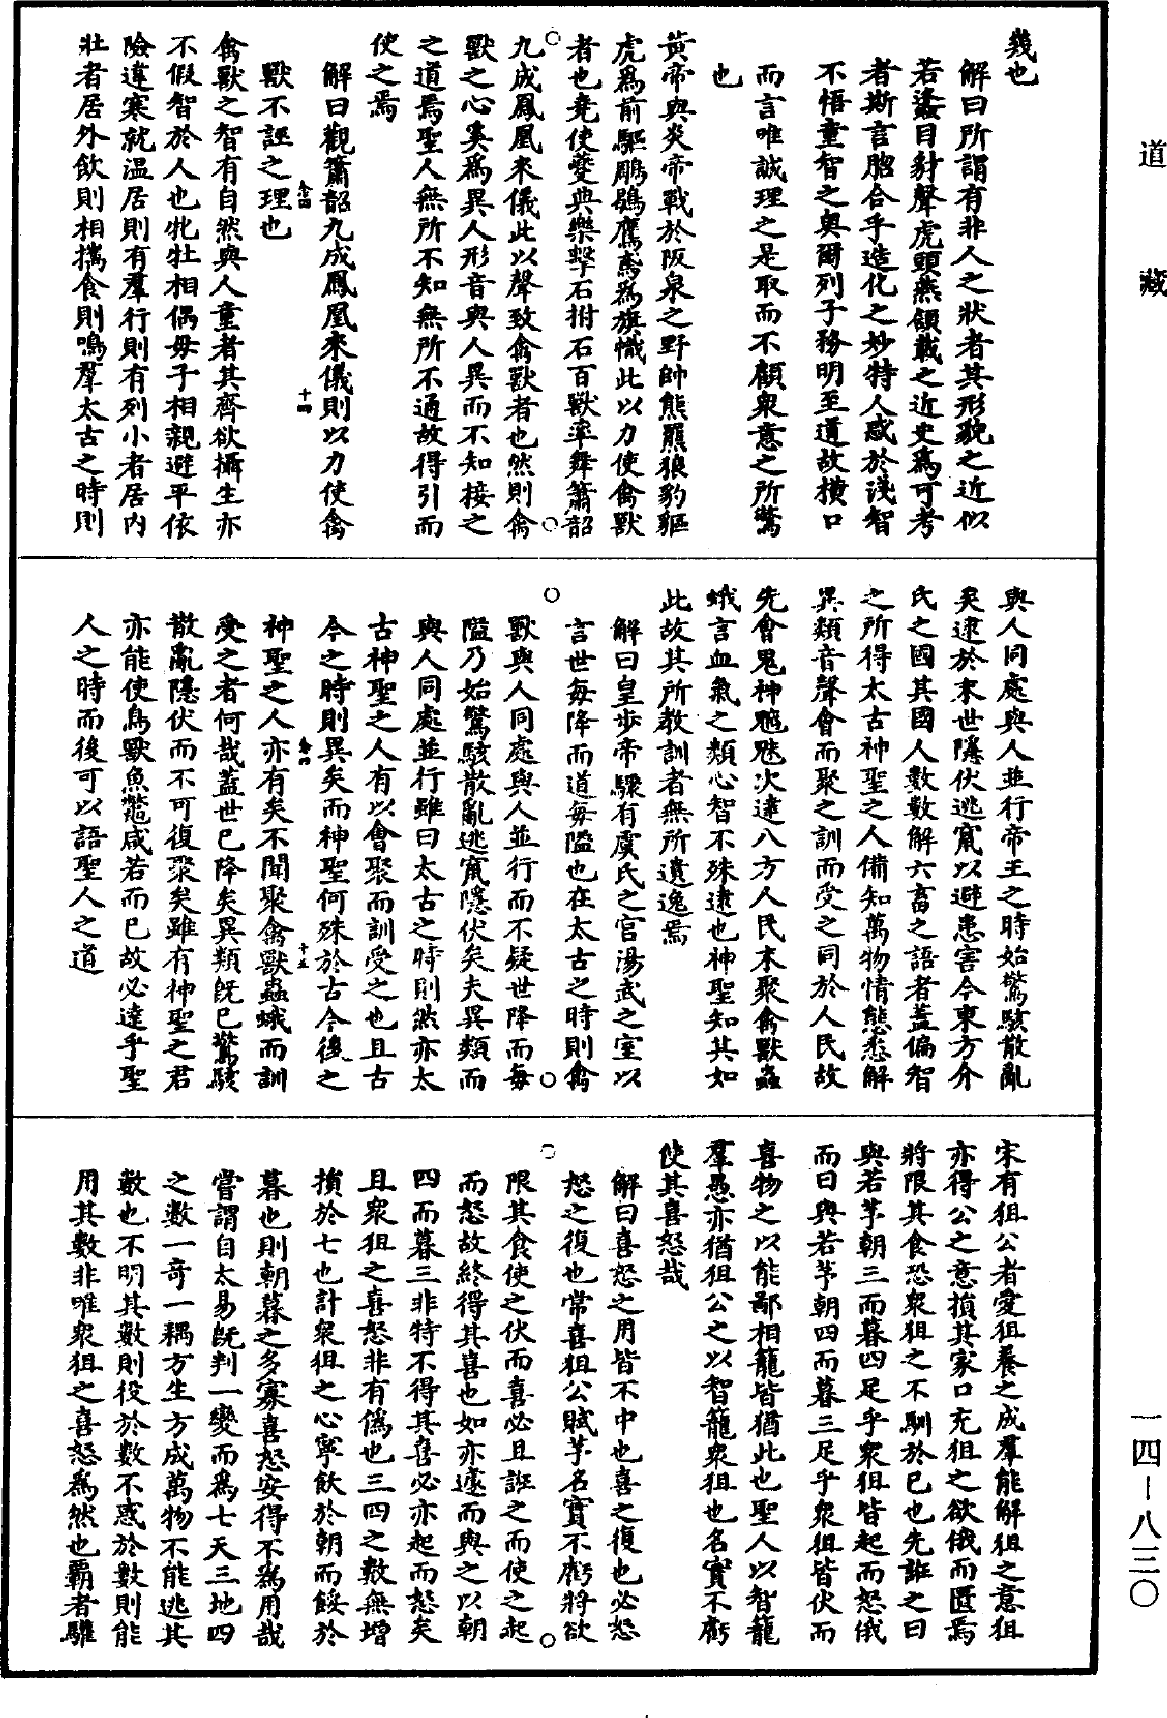 道藏
一四—八三〇
幾也
解曰所謂有非人之狀者其形貌之近似
若蠭目豺聲虎頭燕頷載之近史爲可考
者斯言脗合乎造化之妙特人惑於淺智
不悟童智之奧爾列子務明至道故橫口
而言唯誠理之是取而不顧衆意之所驚
也
黃帝與炎帝戰於阪泉之野帥熊羆狼豹貙
虎爲前驅鵰鶡鷹鳶爲旗幟此以力使禽獸
者也堯使夔典樂擊石拊石百獸率舞簫韶
九成鳳凰來儀此以聲致禽獸者也然則禽
獸之心奚爲異人形音與人異而不知接之
之道焉聖人無所不知無所不通故得引而
使之焉
解曰觀簫韶九成鳳凰來儀則以力使禽
獸不誣之理也
禽獸之智有自然與人童者其齊欲攝生亦
不假智於人也牝牡相偶母子相親避平依
險違寒就温居則有羣行則有列小者居內
壯者居外飲則相攜食則鳴羣太古之時則
與人同處與人並行帝王之時始驚駭散亂
矣逮於末世隱伏逃竄以避患害今東方介
氏之國其國人數數解六畜之語者蓋偏智
之所得太古神聖之人備知萬物情態悉解
異類音聲會而聚之訓而受之同於人民故
先會鬼神魑魅次達八方人民末聚禽獸蟲
蛾言血氣之類心智不殊逺也神聖知其如
此故其所教訓者無所遺逸焉
解曰皇步帝驟有虞氏之宮湯武之室以
言世每降而道每隘也在太古之時則禽
獸與人同處與人並行而不疑世降而每
隘乃始驚駭散亂逃竄隱伏矣夫異類而
與人同處並行雖曰太古之時則然亦太
古神聖之人有以會聚而訓受之也且古
今之時則異矣而神聖何殊於古今後之
神聖之人亦有矣不聞聚禽獸蟲蛾而訓
受之者何哉蓋世已降矣異類既已驚駭
散亂隱伏而不可復聚矣雖有神聖之君
亦能使鳥獸魚鼈咸若而已故必達乎聖
人之時而後可以語聖人之道
宋有狙公者愛狙養之成羣能解狙之意狙
亦得公之意損其家口充狙之欲俄而匱焉
將限其食恐衆狙之不馴於已也先誑之曰
與若芧朝三而暮四足乎衆狙皆起而怒俄
而曰與若芧朝四而暮三足乎衆狙皆伏而
喜物之以能鄙相籠皆猶此也聖人以智籠
羣愚亦猶狙公之以智籠衆狙也名實不虧
使其喜怒哉
解曰喜怒之用皆不中也喜之復也必怒
怒之復也常喜狙公賦芧名實不虧將欲
限其食使之伏而喜必且誑之而使之起
而怒故終得其喜也如亦遽而與之以朝
四而暮三非特不得其喜必亦起而怒矣
且衆狙之喜怒非有僞也三四之數無增
損於七也計衆狙之心寧飲於朝而餒於
暮也則朝暮之多寡喜怒安得不爲用哉
嘗謂自太易既判一變而爲七天三地四
之數一奇一耦方生方成萬物不能逃其
數也不明其數則役於數不惑於數則能
用其數非唯衆狙之喜怒爲然也覇者驩